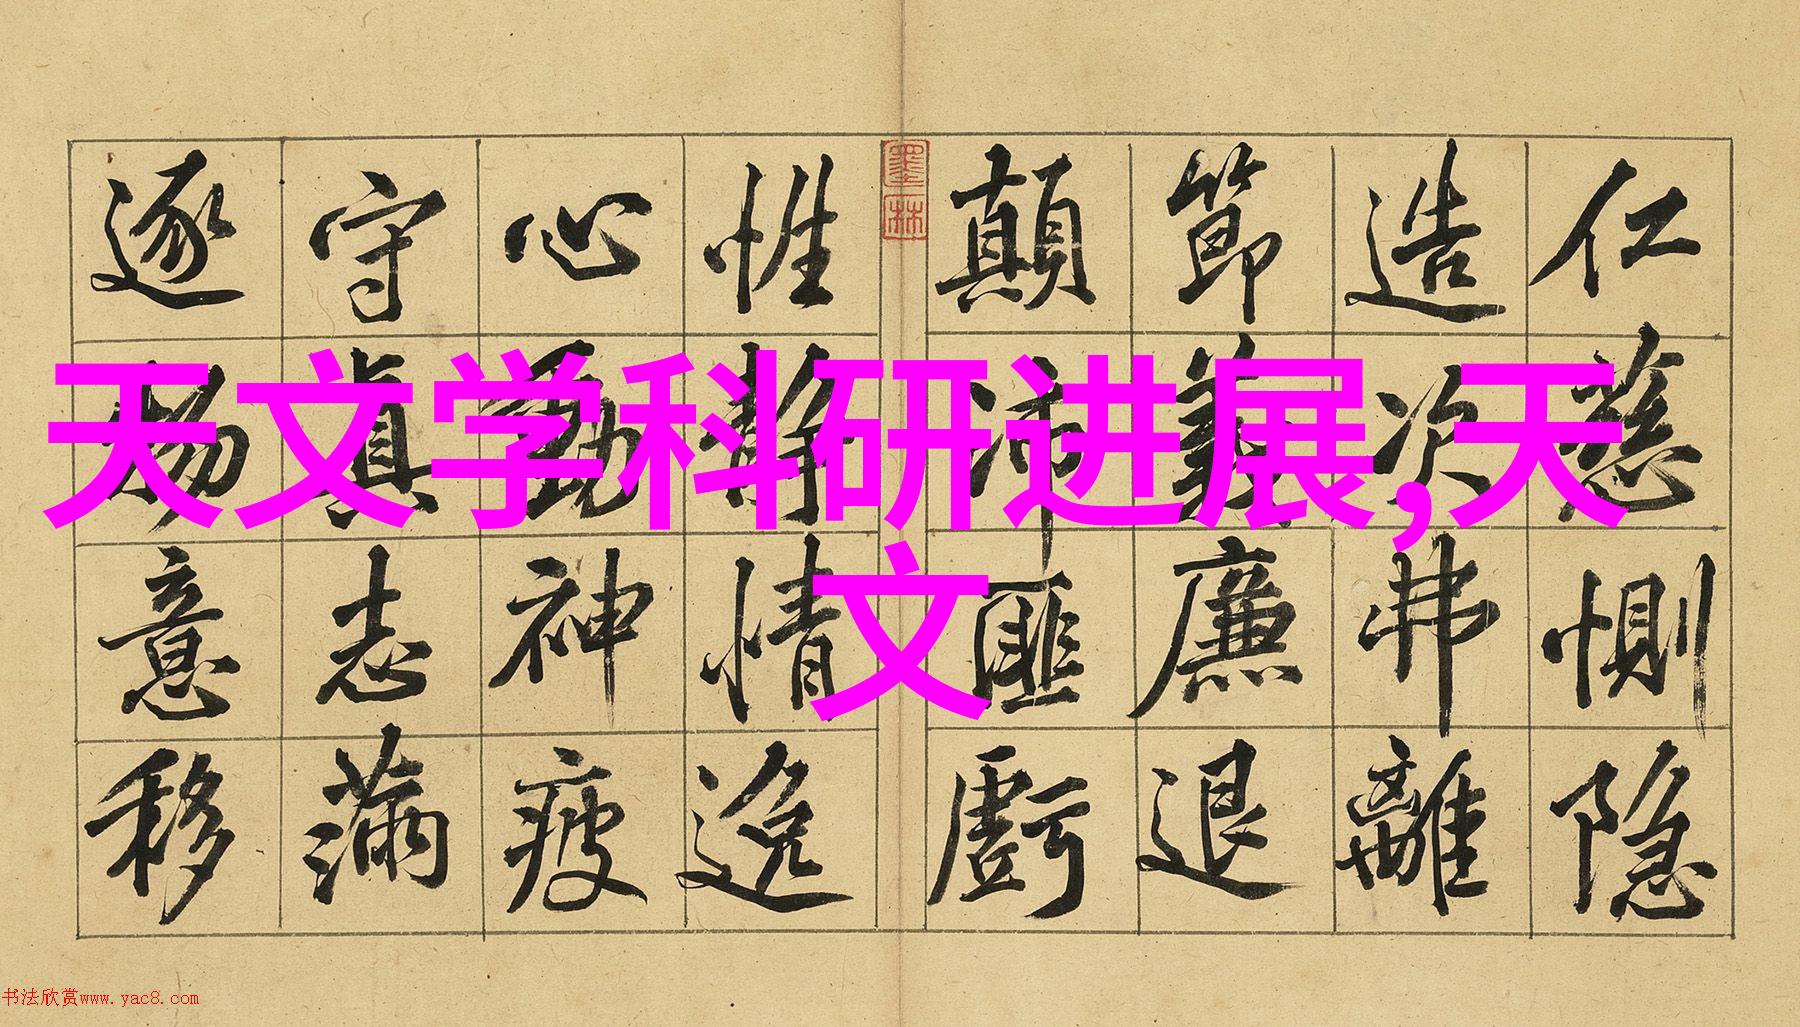 仁慈惻隐
造次弗離
節義廉退
顛沛匪虧
性静情逸
心動神疲
守真志滿
逐物意移
墨林
天文学科研进展,天
文
书法欣赏www.yac8.com